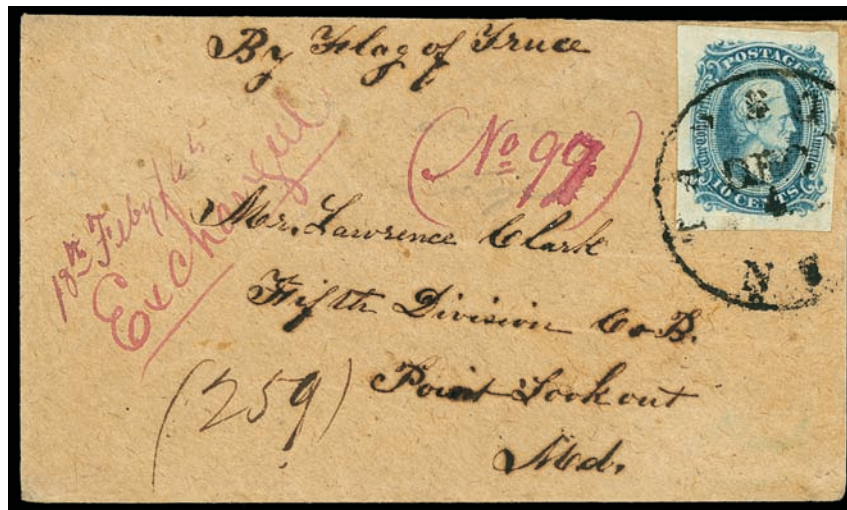 By Flag of Truce
POSTAGE
10 CENTS
DEC
4
N
(No 99)
18th Feby/65
Exchanged
Mr. Lawrence Clark
Fifth Division Co B.
(259)
Point Lookout
Md.